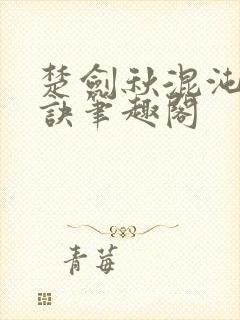 楚劍秋混沌
訣筆趣閣
青莓